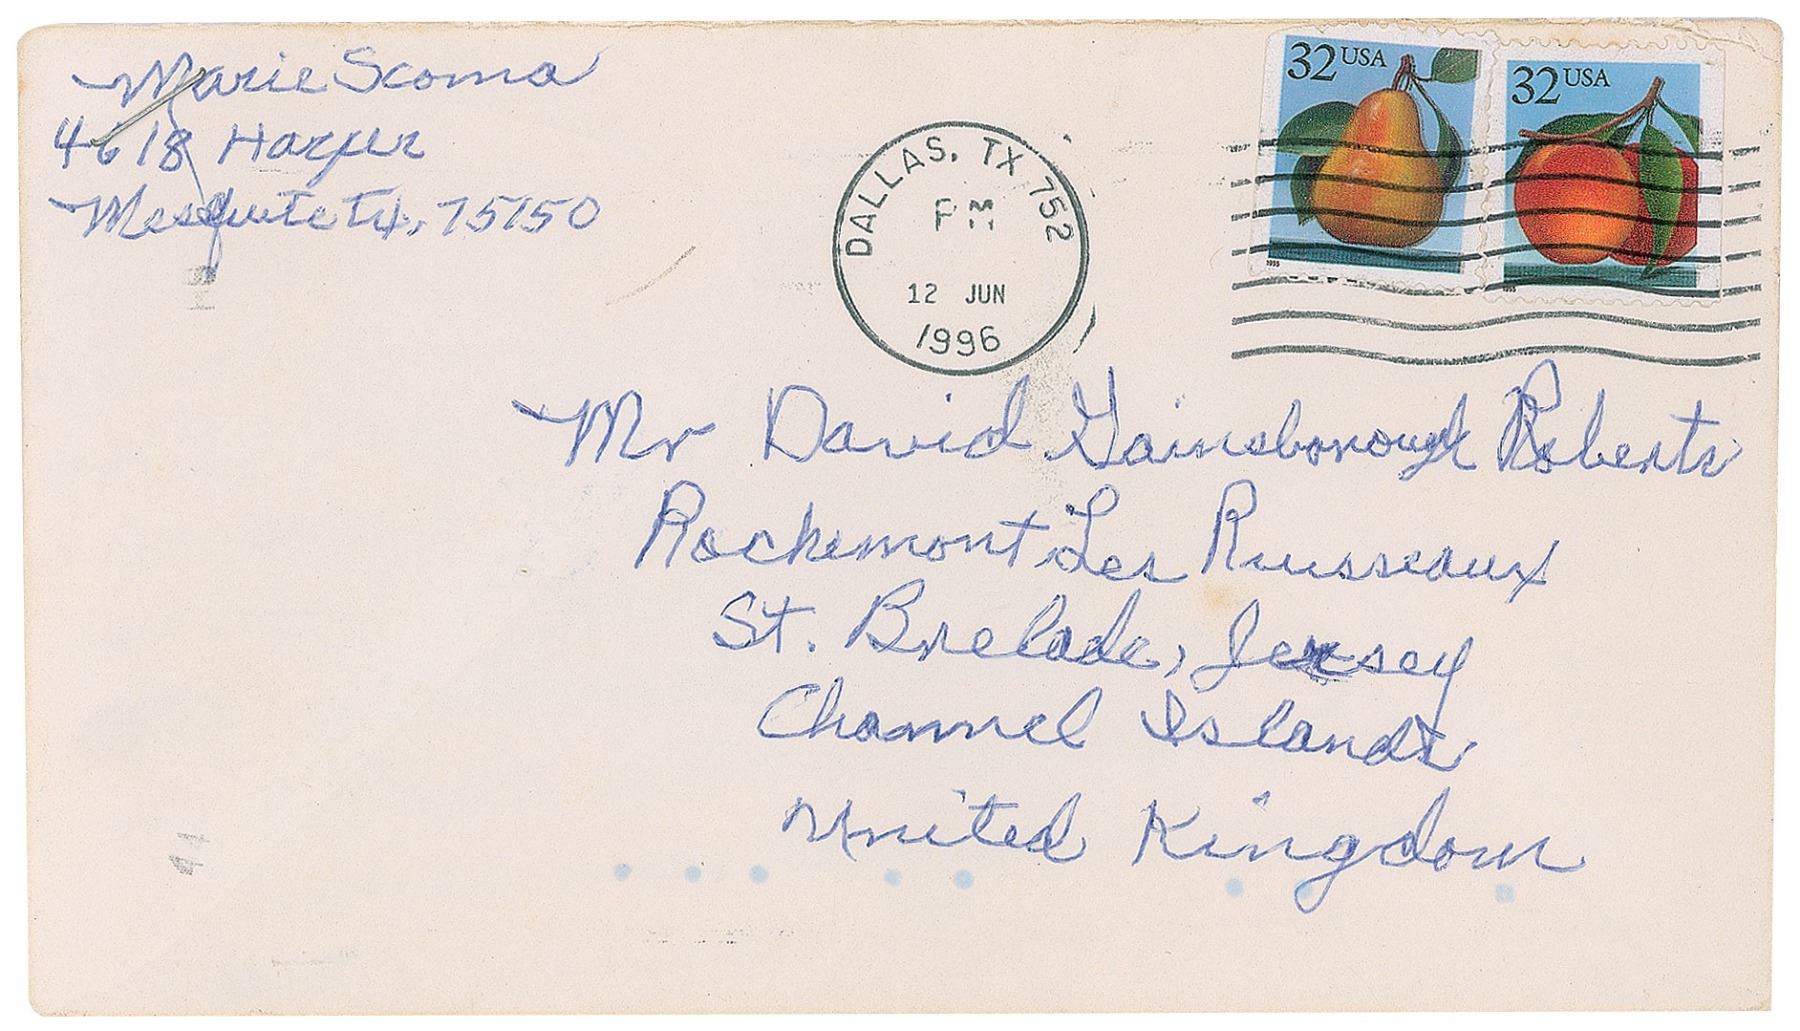 Marie Scoma
4618 Harper
Mesquite Tx, 75150
32 USA
32 USA
DALLAS, TX 752
PM
12 JUN
1996
Mr David Gainsborough Roberts
Rockemont Les Ruisseaux
St. Brelade, Jersey
Channel Islands
United Kingdom